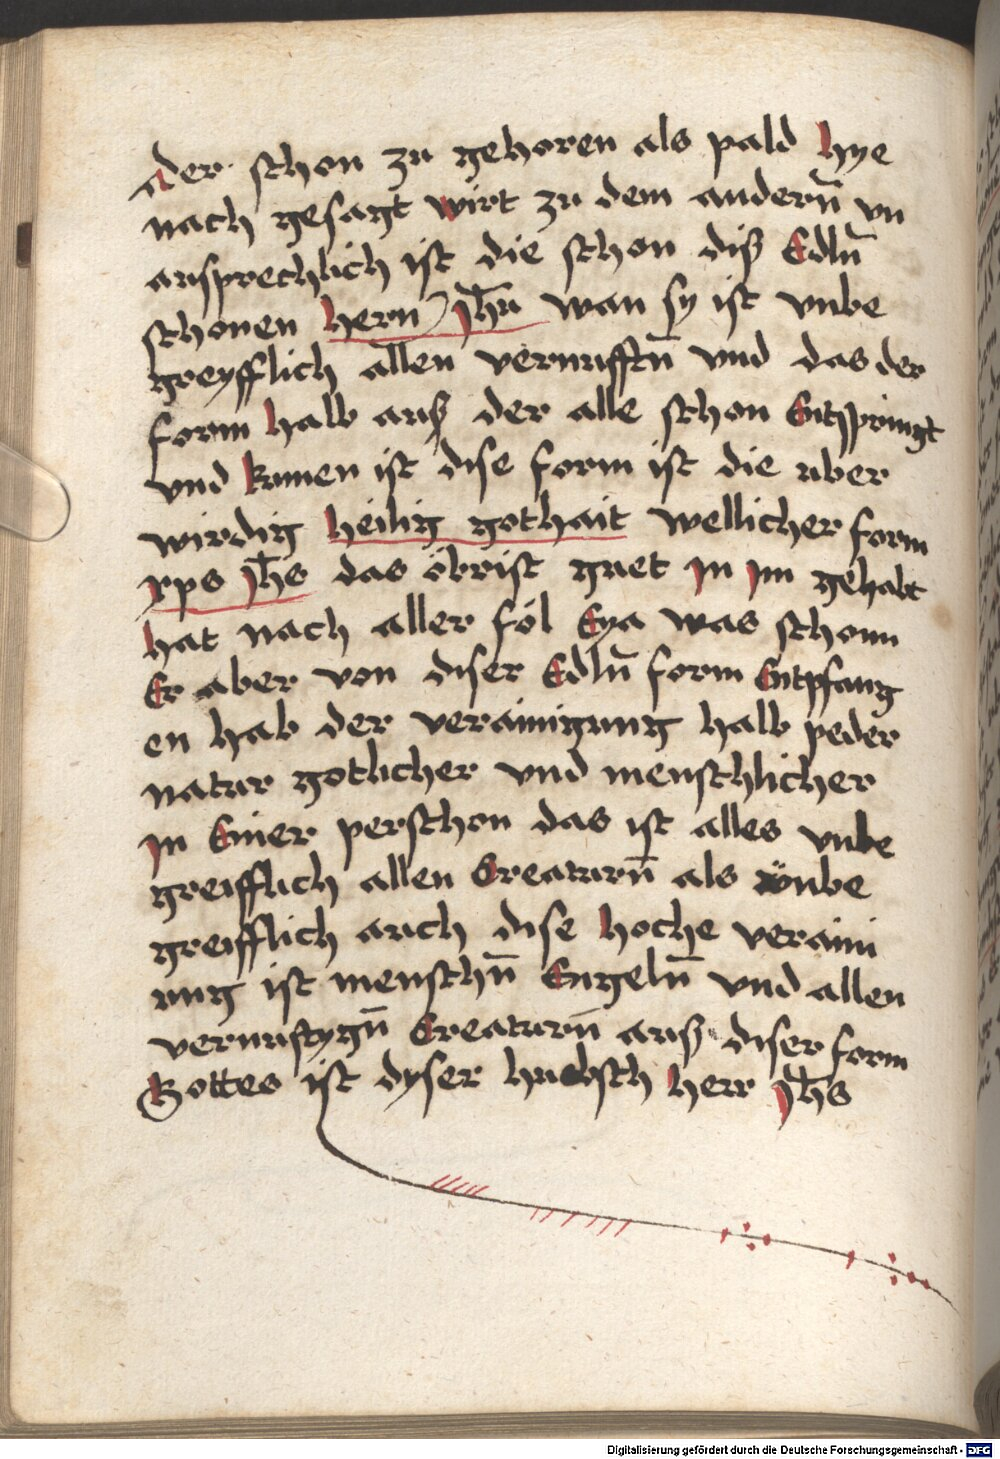 der schon zu gehoren als pald hye
nach gesagt wirt zu dem andern̄ vn
ausprechlich ist die schon diß Edln̄
schonen hern Jh̄u wan sy ist vnbe
greyfflich allen vernufftn̄ vnd das der
form halb auß der alle schon Entspringt
vnd kumen ist dise form ist die uber
wirdig heilig gothait wellicher form
xps Jh̄s das öbrist guet Jn Jm gehabt
hat nach aller föl Eya was schonn
Er aber von diser Edln̄ form Entpfang
en hab der verainigung halb peder
natur gotlicher vnd menschlicher
Jn Einer perschon das ist alles vnbe
greifflich allen Creaturn̄ als vnbe
greifflich auch dise hoche veraini
ung ist menschn̄ Engeln̄ vnd allen
vernuftygn̄ Creaturn̄ auß diser form
Gottes ist dyser hubsch herr Jh̄s
Digitalisierung gefördert durch die Deutsche Forschungsgemeinschaft - DFG